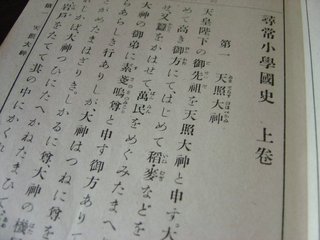 尋常小學國史 上卷
第一 天照大神
あまてらすおほみかみ
天皇陛下の御先祖を天照大神と申す大
めて高き御方にてはじめて稻・麥などを
せ又蠶をかはせて萬民をめぐみたまへ
大神の御弟に素戔嗚尊と申す御方ありて
らあらしき行ありしが大神はつねに尊を
たまはざりき。しかるに尊大神の機
しかば大神つひにたへかねたまひて
岩戸をたてて其の中にかくれ
天照大神